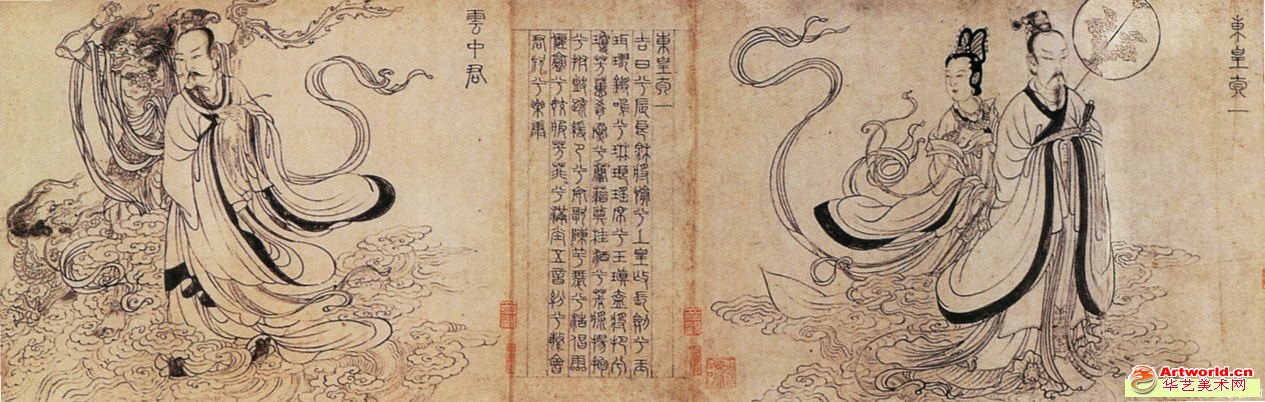 東皇太一
東皇太一
吉日兮辰良穆將愉兮上皇撫長劍兮玉
珥璆鏘鳴兮琳琅瑤席兮玉瑱盍將把兮
瓊芳蕙肴蒸兮蘭藉奠桂酒兮椒漿揚枹
兮拊鼓疏緩節兮安歌陳竽瑟兮浩倡靈
偃蹇兮姣服芳菲菲兮滿堂五音紛兮繁會
君欣兮樂康
雲中君
Artworld.cn
华艺美术网